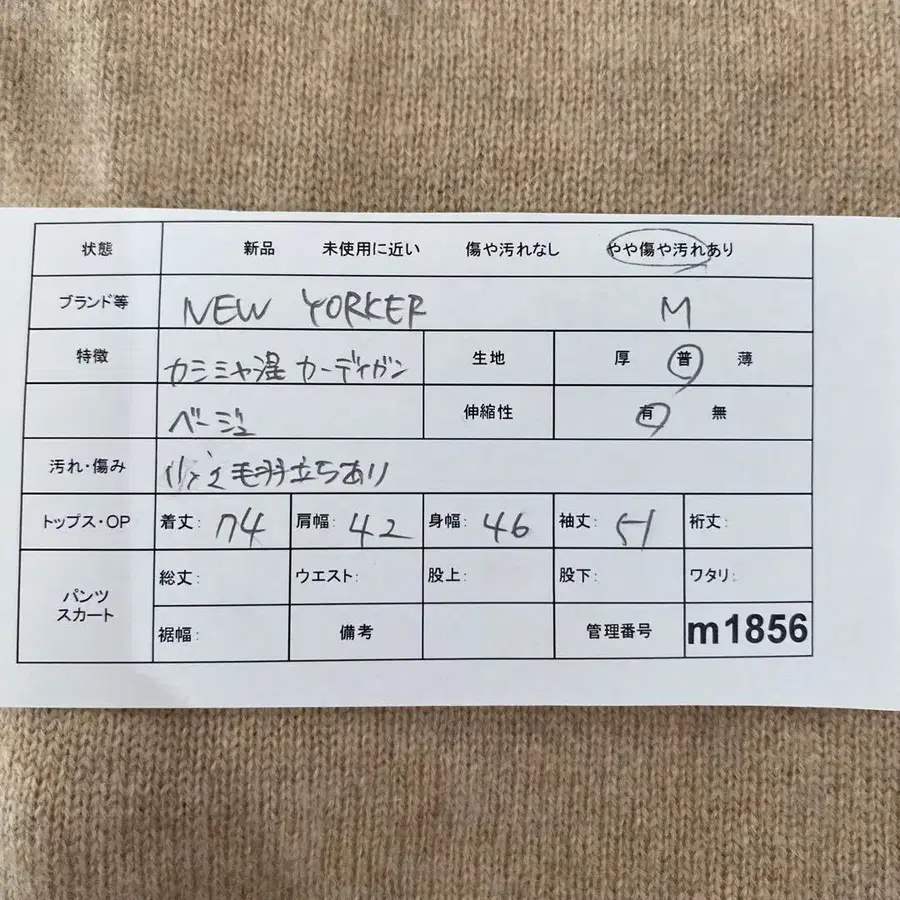 状態 新品 未使用に近い 傷や汚れなし やや傷や汚れあり
ブランド等 NEW YORKER M
特徴 カシミヤ混 カーディガン 生地 厚 普 薄
ベージュ 伸縮性 有 無
汚れ・傷み 毛羽立ちあり
トップス・OP 着丈: 74 肩幅: 42 身幅: 46 袖丈: 51 裄丈:
パンツ スカート 総丈: ウエスト: 股上: 股下: ワタリ:
裾幅: 備考 管理番号 m1856